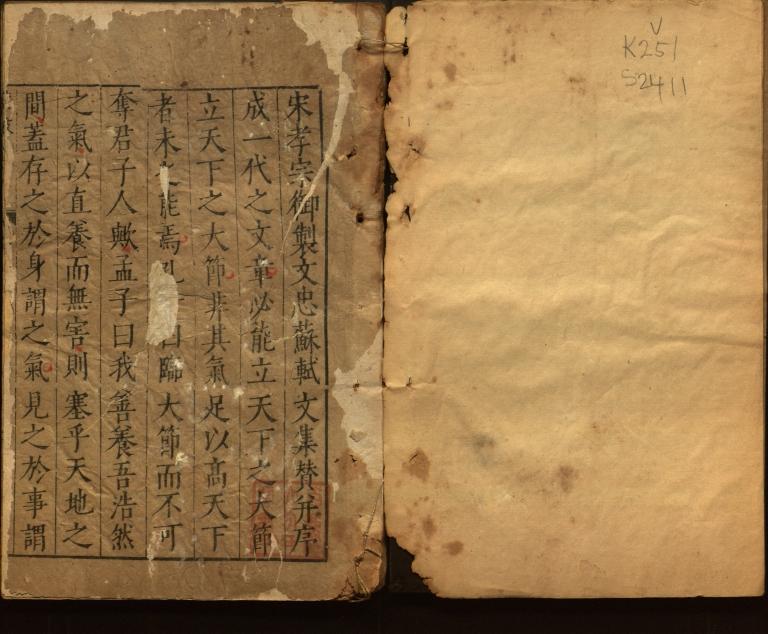 宋孝宗御製文忠蘇軾文集贊并序
成一代之文章必能立天下之大節
立天下之大節非其氣足以高天下
者未之能焉孔子曰臨大節而不可
奪君子人歟孟子曰我善養吾浩然
之氣以直養而無害則塞乎天地之
間蓋存之於身謂之氣見之於事謂
V
K251
S2411